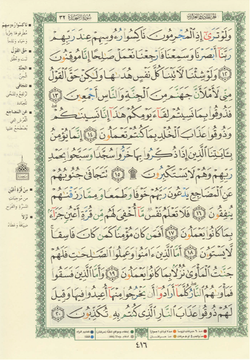 ٣٢
وَلَوْ تَرَىٰٓ إِذِ ٱلْمُجْرِمُونَ نَاكِسُوا۟ رُءُوسِهِمْ عِندَ رَبِّهِمْ
رَبَّنَآ أَبْصَرْنَا وَسَمِعْنَا فَٱرْجِعْنَا نَعْمَلْ صَٰلِحًا إِنَّا مُوقِنُونَ
١٢ وَلَوْ شِئْنَا لَءَاتَيْنَا كُلَّ نَفْسٍ هُدَىٰهَا وَلَٰكِنْ حَقَّ ٱلْقَوْلُ
مِنِّى لَأَمْلَأَنَّ جَهَنَّمَ مِنَ ٱلْجِنَّةِ وَٱلنَّاسِ أَجْمَعِينَ
١٣ فَذُوقُوا۟ بِمَا نَسِيتُمْ لِقَآءَ يَوْمِكُمْ هَٰذَآ إِنَّا نَسِينَٰكُمْ
وَذُوقُوا۟ عَذَابَ ٱلْخُلْدِ بِمَا كُنتُمْ تَعْمَلُونَ ١٤ إِنَّمَا يُؤْمِنُ
بِـَٔايَٰتِنَا ٱلَّذِينَ إِذَا ذُكِّرُوا۟ بِهَا خَرُّوا۟ سُجَّدًا وَسَبَّحُوا۟ بِحَمْدِ
رَبِّهِمْ وَهُمْ لَا يَسْتَكْبِرُونَ ۩ ١٥ تَتَجَافَىٰ جُنُوبُهُمْ
عَنِ ٱلْمَضَاجِعِ يَدْعُونَ رَبَّهُمْ خَوْفًا وَطَمَعًا وَمِمَّا رَزَقْنَٰهُمْ
يُنفِقُونَ ١٦ فَلَا تَعْلَمُ نَفْسٌ مَّآ أُخْفِىَ لَهُم مِّن قُرَّةِ أَعْيُنٍ جَزَآءًۢ
بِمَا كَانُوا۟ يَعْمَلُونَ ١٧ أَفَمَن كَانَ مُؤْمِنًا كَمَن كَانَ فَاسِقًا لَّا
يَسْتَوُۥنَ ١٨ أَمَّا ٱلَّذِينَ ءَامَنُوا۟ وَعَمِلُوا۟ ٱلصَّٰلِحَٰتِ فَلَهُمْ
جَنَّٰتُ ٱلْمَأْوَىٰ نُزُلًۢا بِمَا كَانُوا۟ يَعْمَلُونَ ١٩ وَأَمَّا ٱلَّذِينَ فَسَقُوا۟
فَمَأْوَىٰهُمُ ٱلنَّارُ كُلَّمَآ أَرَادُوٓا۟ أَن يَخْرُجُوا۟ مِنْهَآ أُعِيدُوا۟ فِيهَا وَقِيلَ
لَهُمْ ذُوقُوا۟ عَذَابَ ٱلنَّارِ ٱلَّذِى كُنتُم بِهِۦ تُكَذِّبُونَ ٢٠
٤١٦